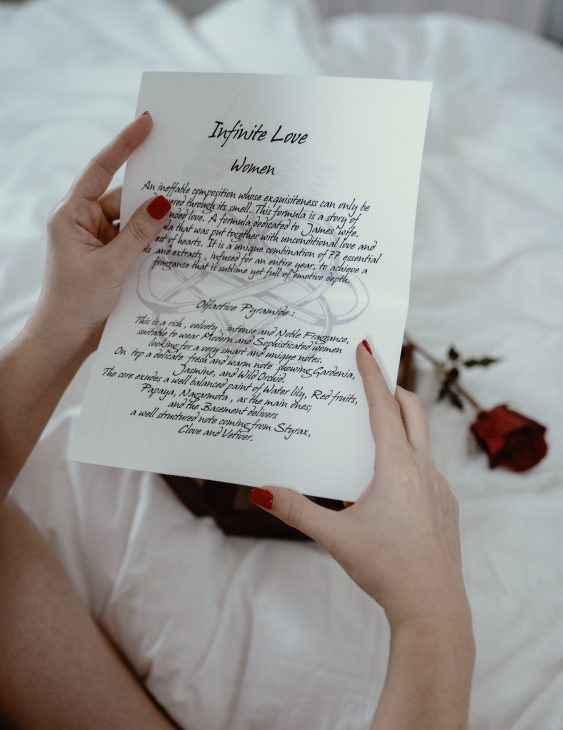 Infinite Love
Women
An ineffable composition whose exquisiteness can only be
through its smell. This formula is a story of
love. A formula dedicated to James' wife.
that was put together with unconditional love and
of hearts. It is a unique combination of 77 essential
and extracts, infused for an entire year, to achieve a
fragrance that is sublime yet full of emotive depth.
Olfactive Pyramide:
This is a rich, velvety, intense and Noble Fragrance,
suitable to wear Modern and Sophisticated women
looking for a very smart and unique notes.
On top a delicate fresh and warm note showing Gardenia,
Jasmine, and Wild Orchid.
The core exudes a well balanced paint of Water lily, Red fruits,
Papaya, Nagamota, as the main ones;
and the Basement delivers
a well structured note coming from Styrax,
Clove and Vetiver.